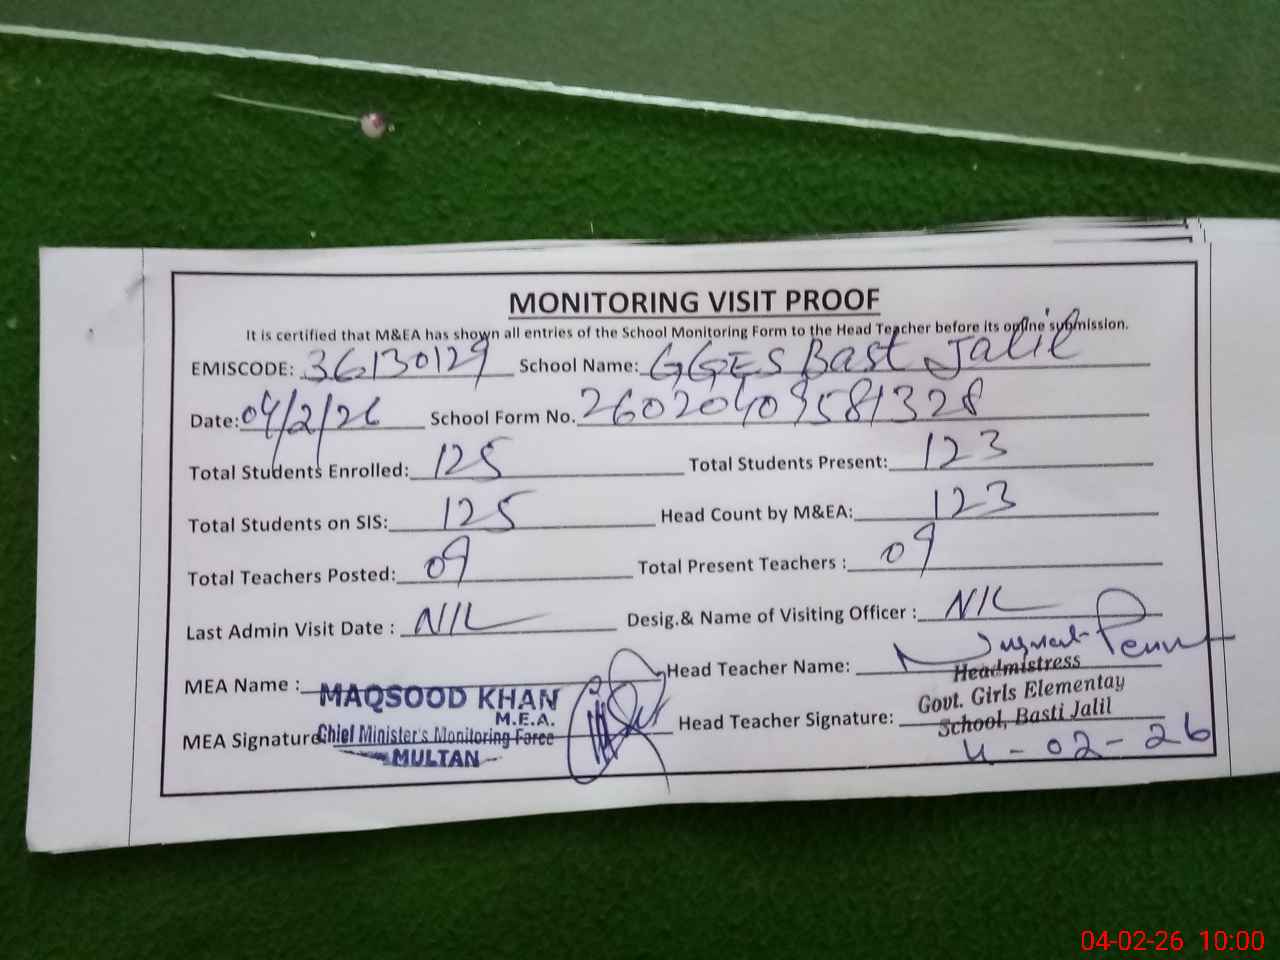 MONITORING VISIT PROOF
It is certified that M&EA has shown all entries of the School Monitoring Form to the Head Teacher before its online submission.
EMISCODE: 36130129 School Name: GGES Bast Jalil
Date: 04/2/26 School Form No. 26020409581328
Total Students Enrolled: 125 Total Students Present: 123
Total Students on SIS: 125 Head Count by M&EA: 123
Total Teachers Posted: 09 Total Present Teachers : 09
Last Admin Visit Date : NIL Desig.& Name of Visiting Officer : NIL
MEA Name : MAQSOOD KHAN Head Teacher Name:
M.E.A. Headmistress
MEA Signature Chief Minister's Monitoring Force Head Teacher Signature: Govt. Girls Elementay
MULTAN School, Basti Jalil
4-02-26
04-02-26 10:00